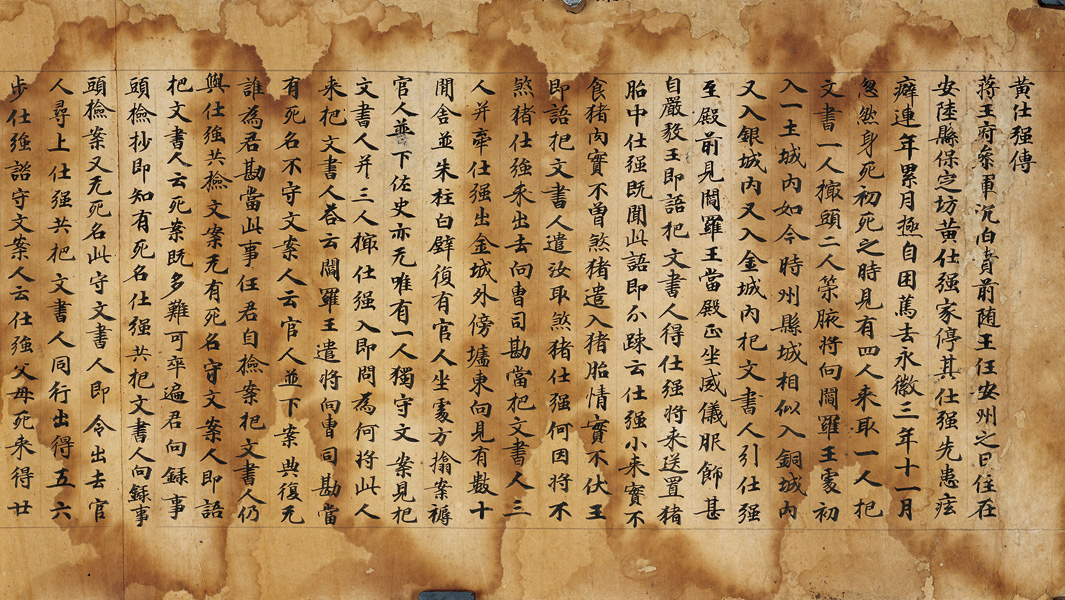 黄仕强傳
蒋王府叅軍沈伯貴前随王任安州之日住在
安陸縣保定坊黄仕强家停其仕强先患痃
癖連年累月極自困篤去永徽三年十一月
忽然身死初死之時見有四人来取一人把
文書一人撖頭二人策腋將向閻羅王䖏初
入一土城内如今時州縣城相似入銅城内
又入銀城内又入金城内把文書人引仕强
至殿前見閻羅王當殿正坐威儀服飾甚
自嚴敎王即語把文書人得仕强將来送置猪
胎中仕强既聞此語即分踈云仕强小来實不
食猪肉實不曽煞猪遣入猪胎情實不伏王
即語把文書人遣汝取煞猪仕强何因將不
煞猪仕强来出去向曺司勘當把文書人三
人并牽仕强出金城外傍壚東向見有數十
間舎並朱柱白壁復有官人坐䖏方搚案褥
官人並下佐史亦无唯有一人獨守文案見把
文書人并三人撖仕强入即問為何將此人
来把文書人荅云閻羅王遣將向曺司勘當
有死名不守文案人云官人並下案典復无
誰為君勘當此事任君自檢案把文書人仍
與仕强共撿文案无有死名守文案人即語
把文書人云死案既多難可卒遍君向録事
頭檢抄即知有死名仕强共把文書人向録事
頭檢案又无死名此守文書人即令出去官
人尋上仕强共把文書人同行出得五六
步仕强語守文案人云仕强父母死来得廿